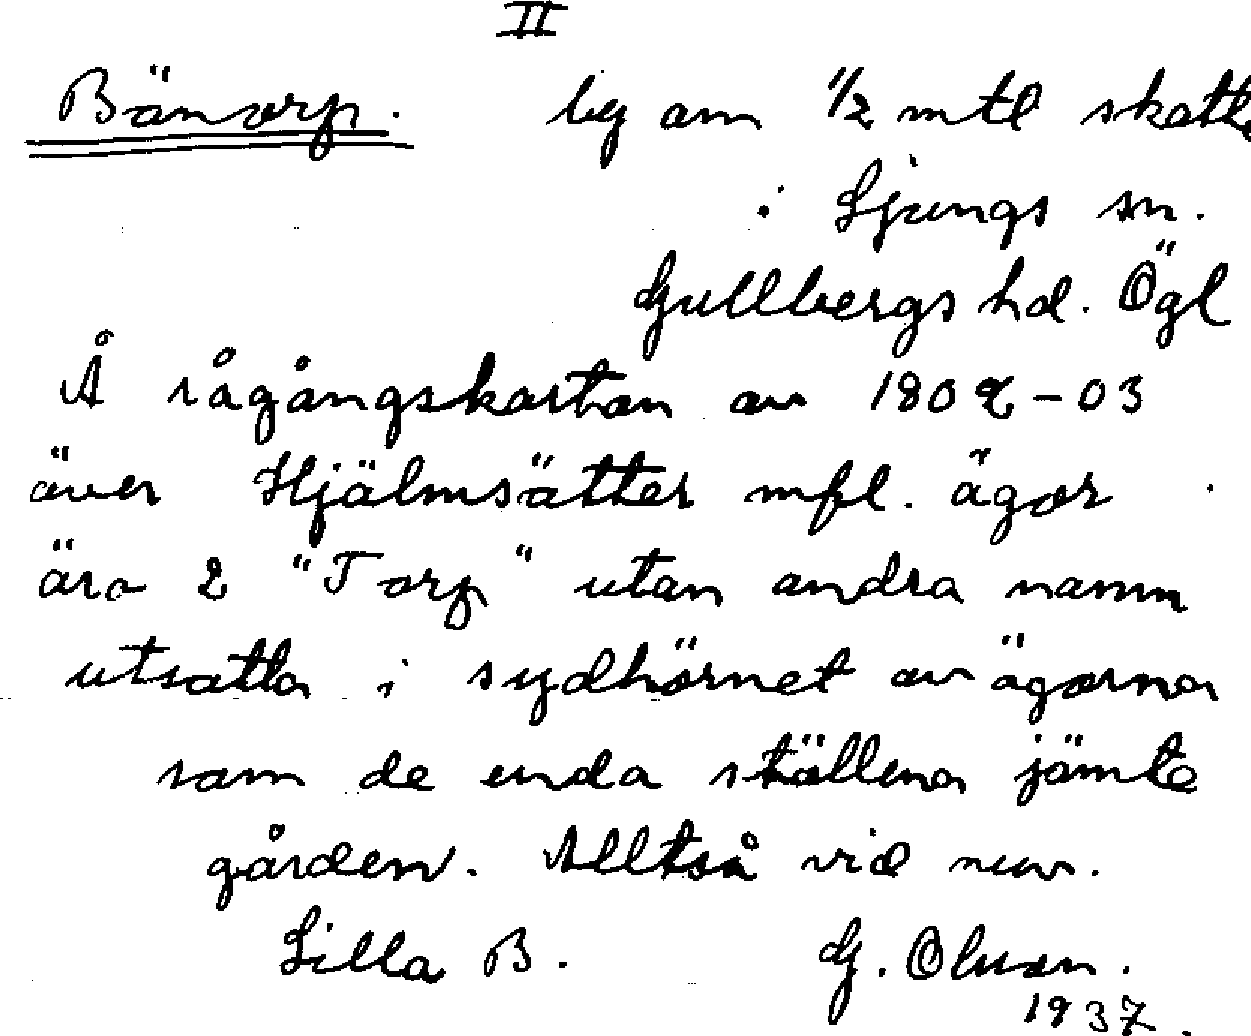 II
Bänorp. by om 1/2 mtl skatte
i Ljungs sn.
Gullbergs hd. Ögl
Å rågångskartan av 1802-03
över Hjälmsätter mfl. ägor
äro 2 "Torp" utan andra namn
utsatta i sydhörnet av ägorna
som de enda ställena jämte
gården. Alltså vid nuv.
Lilla B. G. Olsson.
1937.